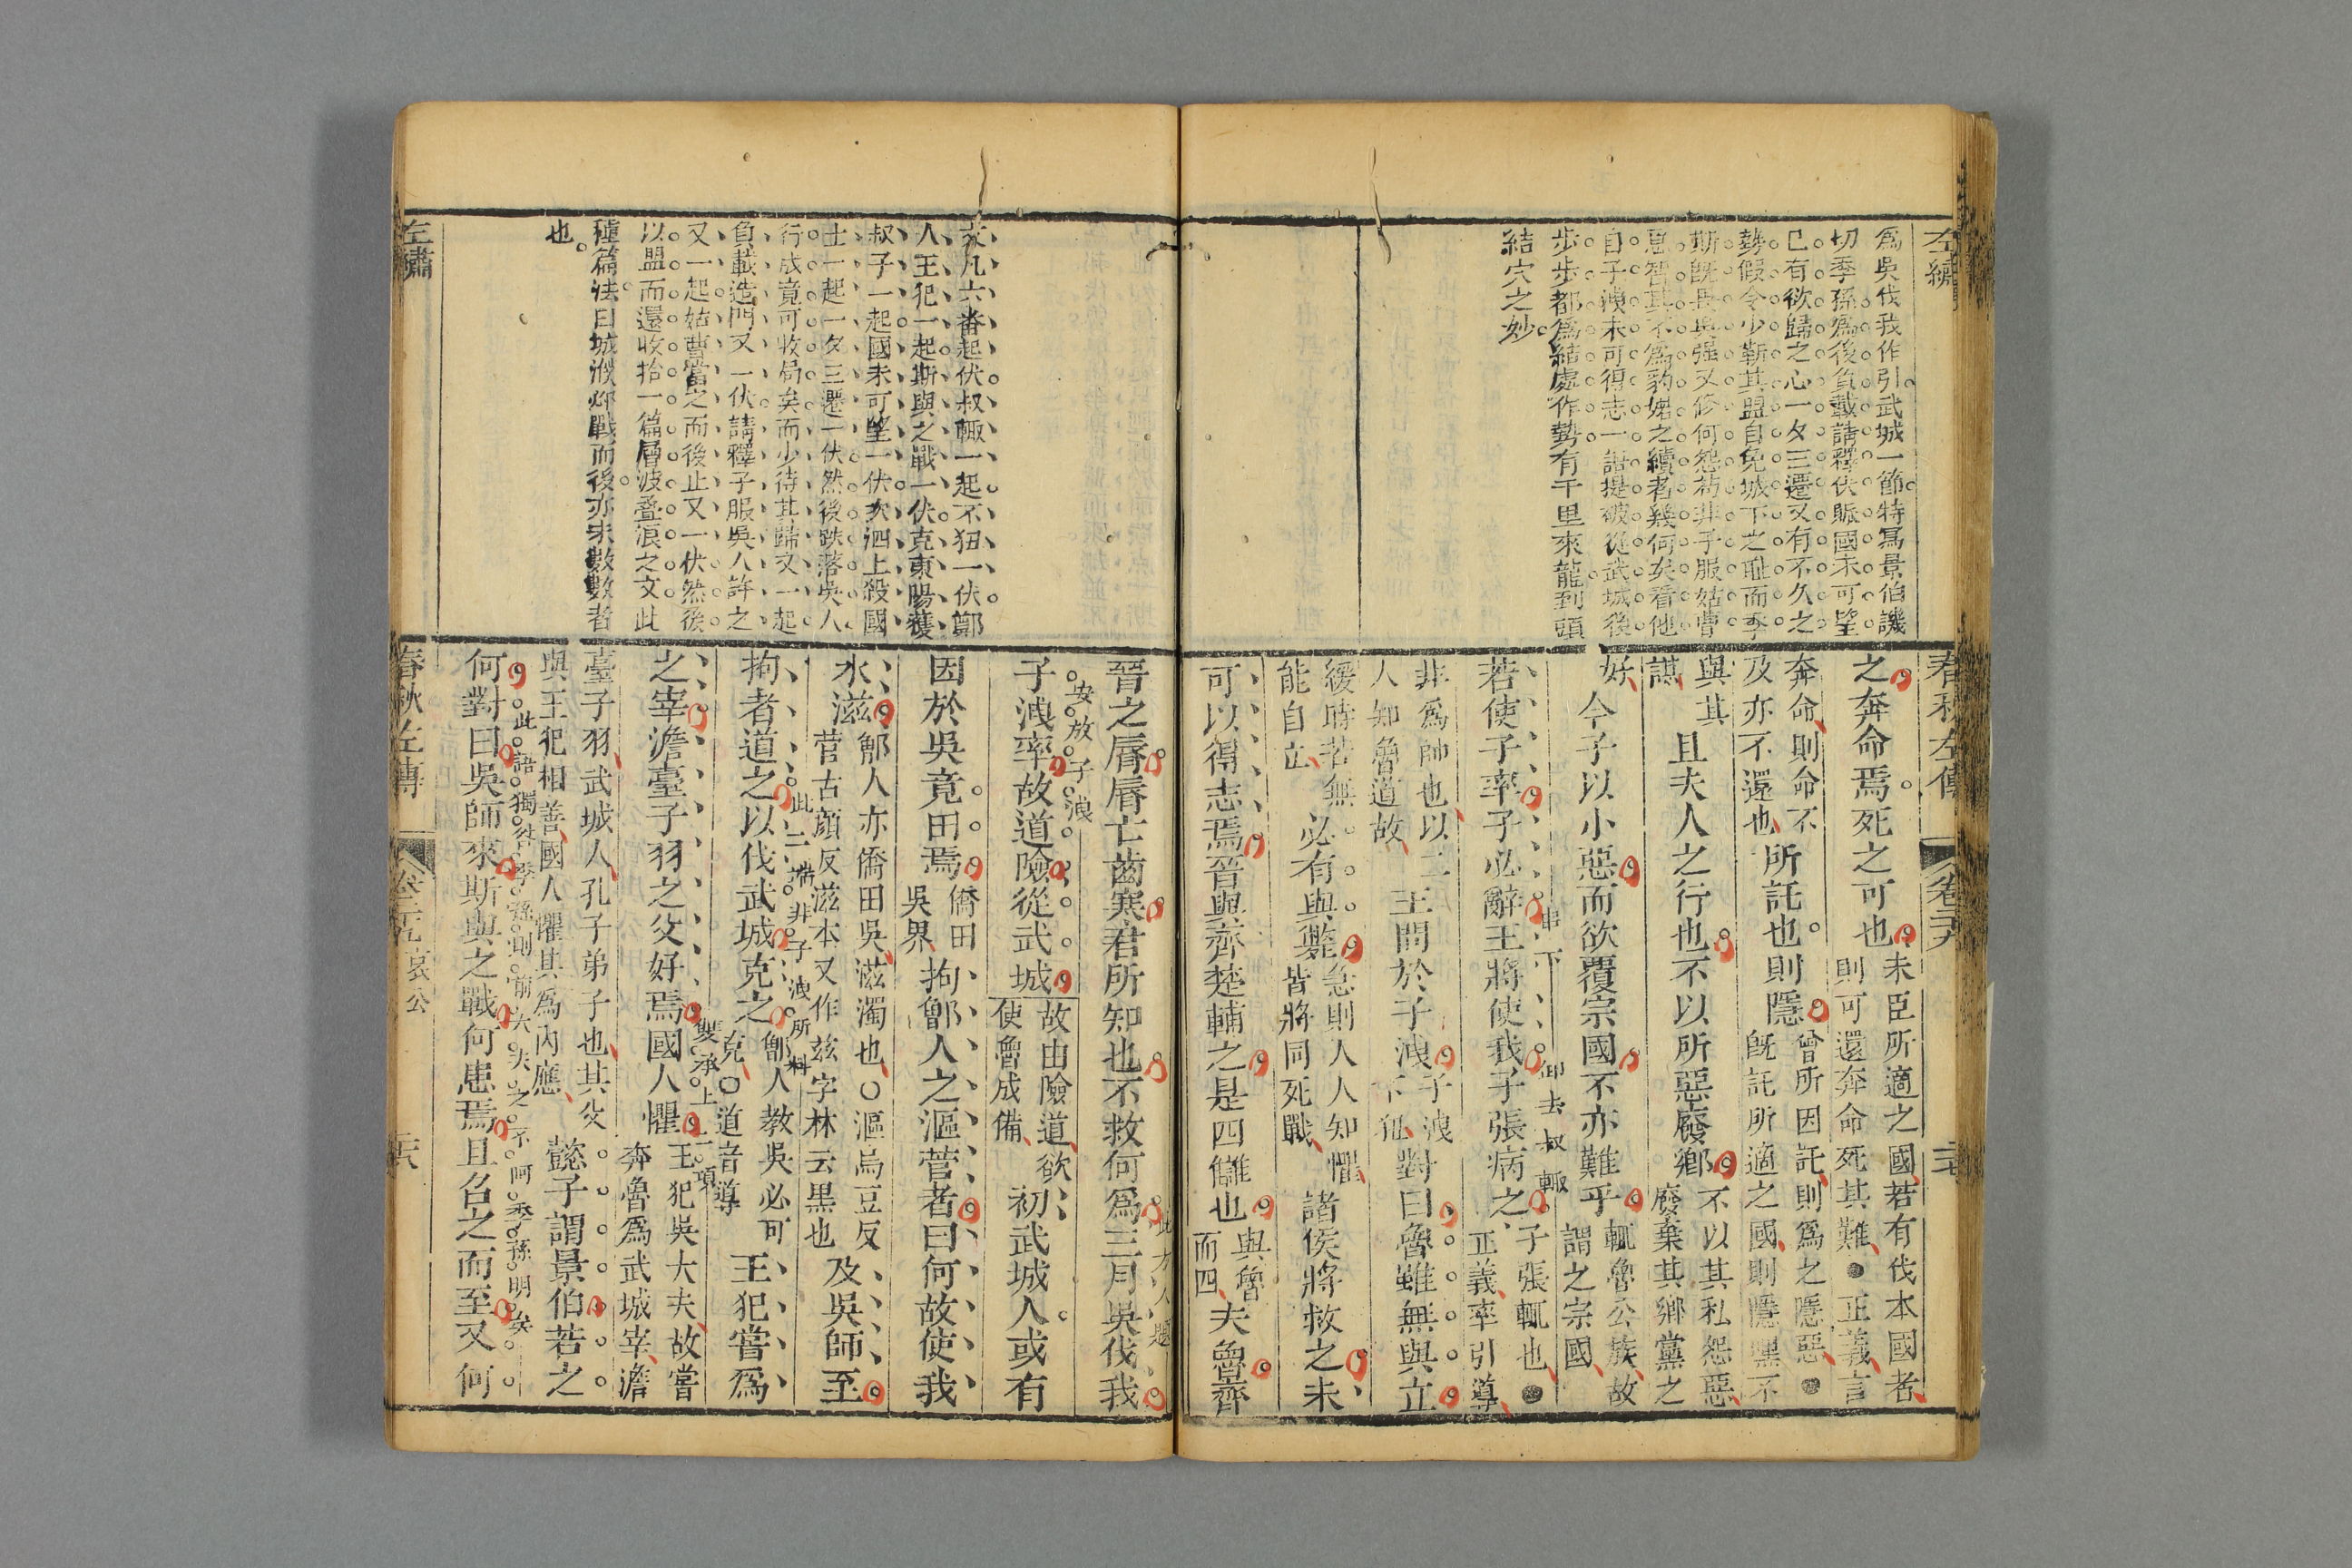 左繡
爲吳伐我作引武城一節特寫景伯譏
切季孫爲後負載請釋伏脈國未可望
已有欲歸之心一夕三遷又有不久之
勢假令少靳其盟自免城下之耻而季
斯既畏與强又修何怨茍非子服姑曹
息智其不爲豹婼之續者幾何矣看他
自子洩未可得志一語提破從武城後
步步都爲結處作勢有千里來龍到頭
結穴之妙
春秋左傳 卷 二十
之奔命焉死之可也
未臣所適之國若有伐本國者
則可還奔命死其難●正義言
奔命則命不
及亦不還也
所託也則隱
曾所因託則爲之隱惡●
既託所適之國則隱
與其
諆
且夫人之行也不以所惡廢鄉
不以其私怨惡
廢棄其鄉黨之
好
今子以小惡而欲覆宗國不亦難乎
輒魯公族故
謂之宗國
若使子率子必辭王將使我子張病之
串下
卸去叔輒
子張輒也●
正義率引導
非爲帥也以二
人知魯道故
王問於子洩
子洩
不狃
對曰魯雖無與立
緩時若無
能自立
必有與斃
急則人人知懼
皆將同死戰
諸侯將救之未
可以得志焉晉與齊楚輔之是四讎也
與魯
而四
夫魯齊
文凡六番起伏叔輒一起不狃一伏鄫
人王犯一起斯與之戰一伏克東陽獲
叔子一起國未可望一伏次泗上殺國
士一起一夕三遷一伏然後跌落吳人
行成竟可收局矣而少待其歸又一起
負載造門又一伏請釋子服吳人許之
又一起姑曹當之而後止又一伏然後
以盟而還收拾一篇層波叠浪之文此
種篇法曰城濮邲戰而後亦未數數者
也
晉之脣脣亡齒寒君所知也不救何爲三月吳伐我
此方入題
安放子洩
子洩率故道險從武城
故由險道欲
使魯成備
初武城人或有
因於吳竟田焉
僑田
吳界
拘鄫人之漚菅者曰何故使我
水滋
鄫人亦僑田吳滋濁也○漚烏豆反
菅古顔反滋本又作兹字林云黑也
及吳師至
拘者道之以伐武城克之
此二端非子洩所料
鄫人教吳必可
克○道音導
王犯嘗爲
之宰澹臺子羽之父好焉國人懼
雙承上二項
王犯吳大夫故嘗
奔魯爲武城宰澹
臺子羽武城人孔子弟子也其父
與王犯相善國人懼其爲內應
懿子謂景伯若之
何對曰吳師來斯與之戰何患焉且召之而至又何
此語獨咎季孫則前大夫之不阿季孫明矣
左繡
春秋左傳 哀公